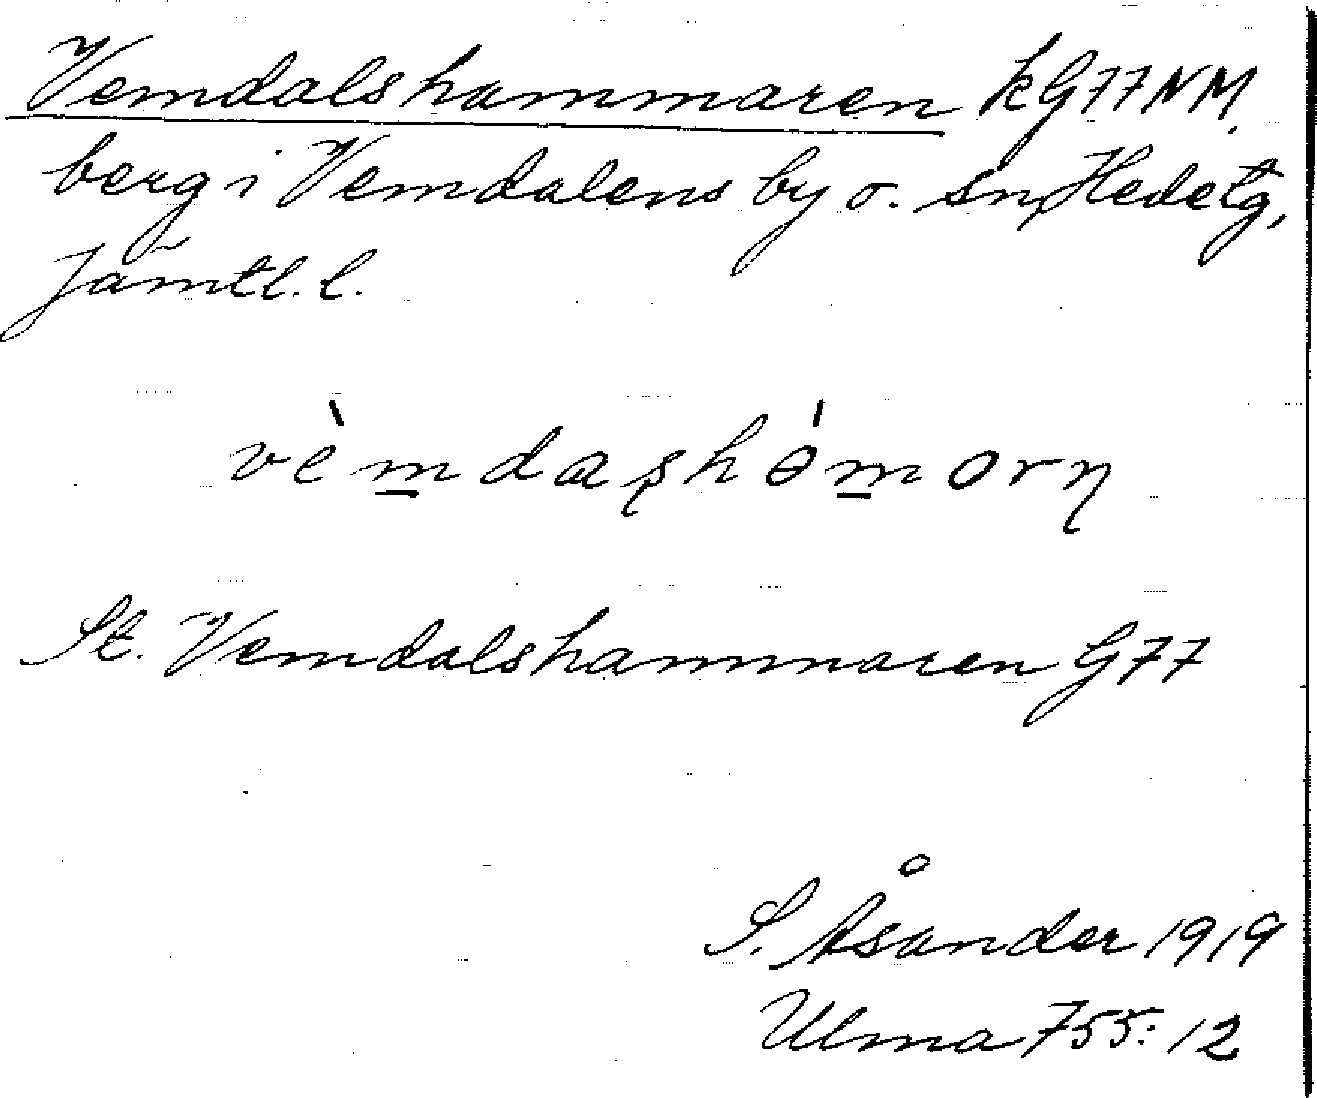 Vemdalshammaren kG77NM.
berg i Vemdalens by o. sn, Hedetg,
Jämtl. l.
vèm̲daʂhə́m̲orɳ
St. Vemdalshammaren G77
S. Åsander 1919
Ulma 755:12